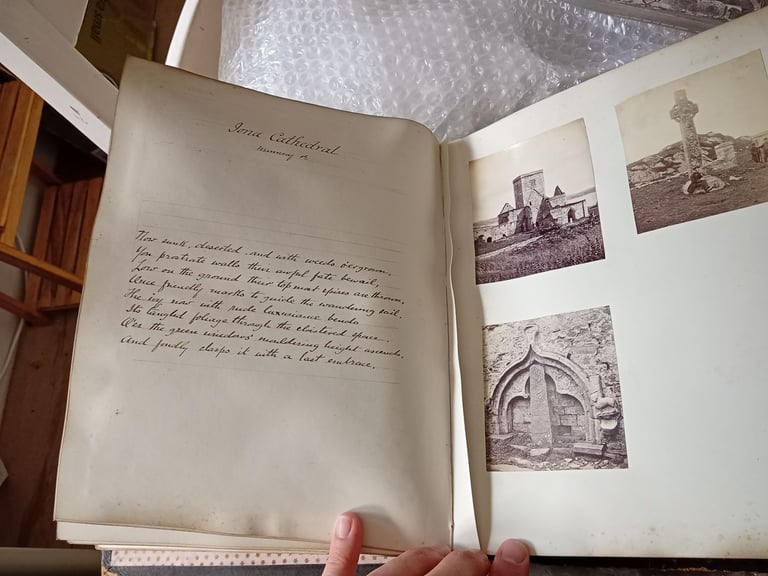 Iona Cathedral
Now sunk, deserted, and with weeds o'ergrown,
Yon prostrate walls their awful fate bewail,
Low on the ground their topmost spires are thrown,
Once friendly marks to guide the wandering sail.
The ivy now with rude luxuriance bends
Its tangled foliage through the cloistered space,
O'er the green windows' mouldering height ascends,
And fondly clasps it with a last embrace.